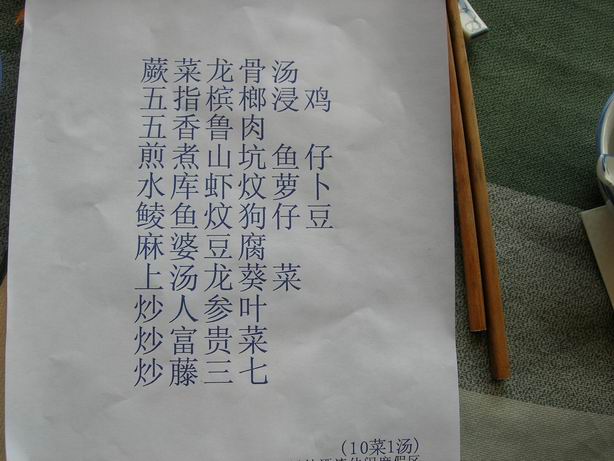 蕨菜龙骨汤
五指槟榔浸鸡
五香鲁肉
煎煮山坑鱼仔
水库虾炆萝卜
鲮鱼炆狗仔豆
麻婆豆腐
上汤龙葵菜
炒人参叶
炒富贵菜
炒藤三七
(10菜1汤)